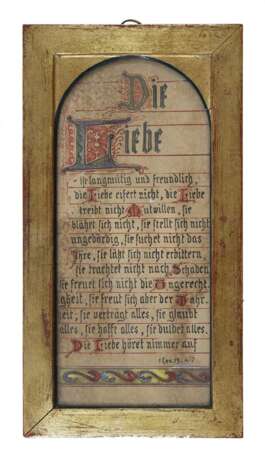 Die
Liebe
ist langmütig und freundlich,
die Liebe eifert nicht, die Liebe
treibt nicht Mutwillen, sie
blähet sich nicht, sie stellt sich nicht
ungebärdig, sie suchet nicht das
Ihre, sie läßt sich nicht erbittern,
sie trachtet nicht nach Schaden
sie freuet sich nicht die Ungerecht
igkeit, sie freut sich aber der Wahr
heit, sie verträgt alles, sie glaubt
alles, sie hofft alles, sie duldet alles.
Die Liebe höret nimmer auf